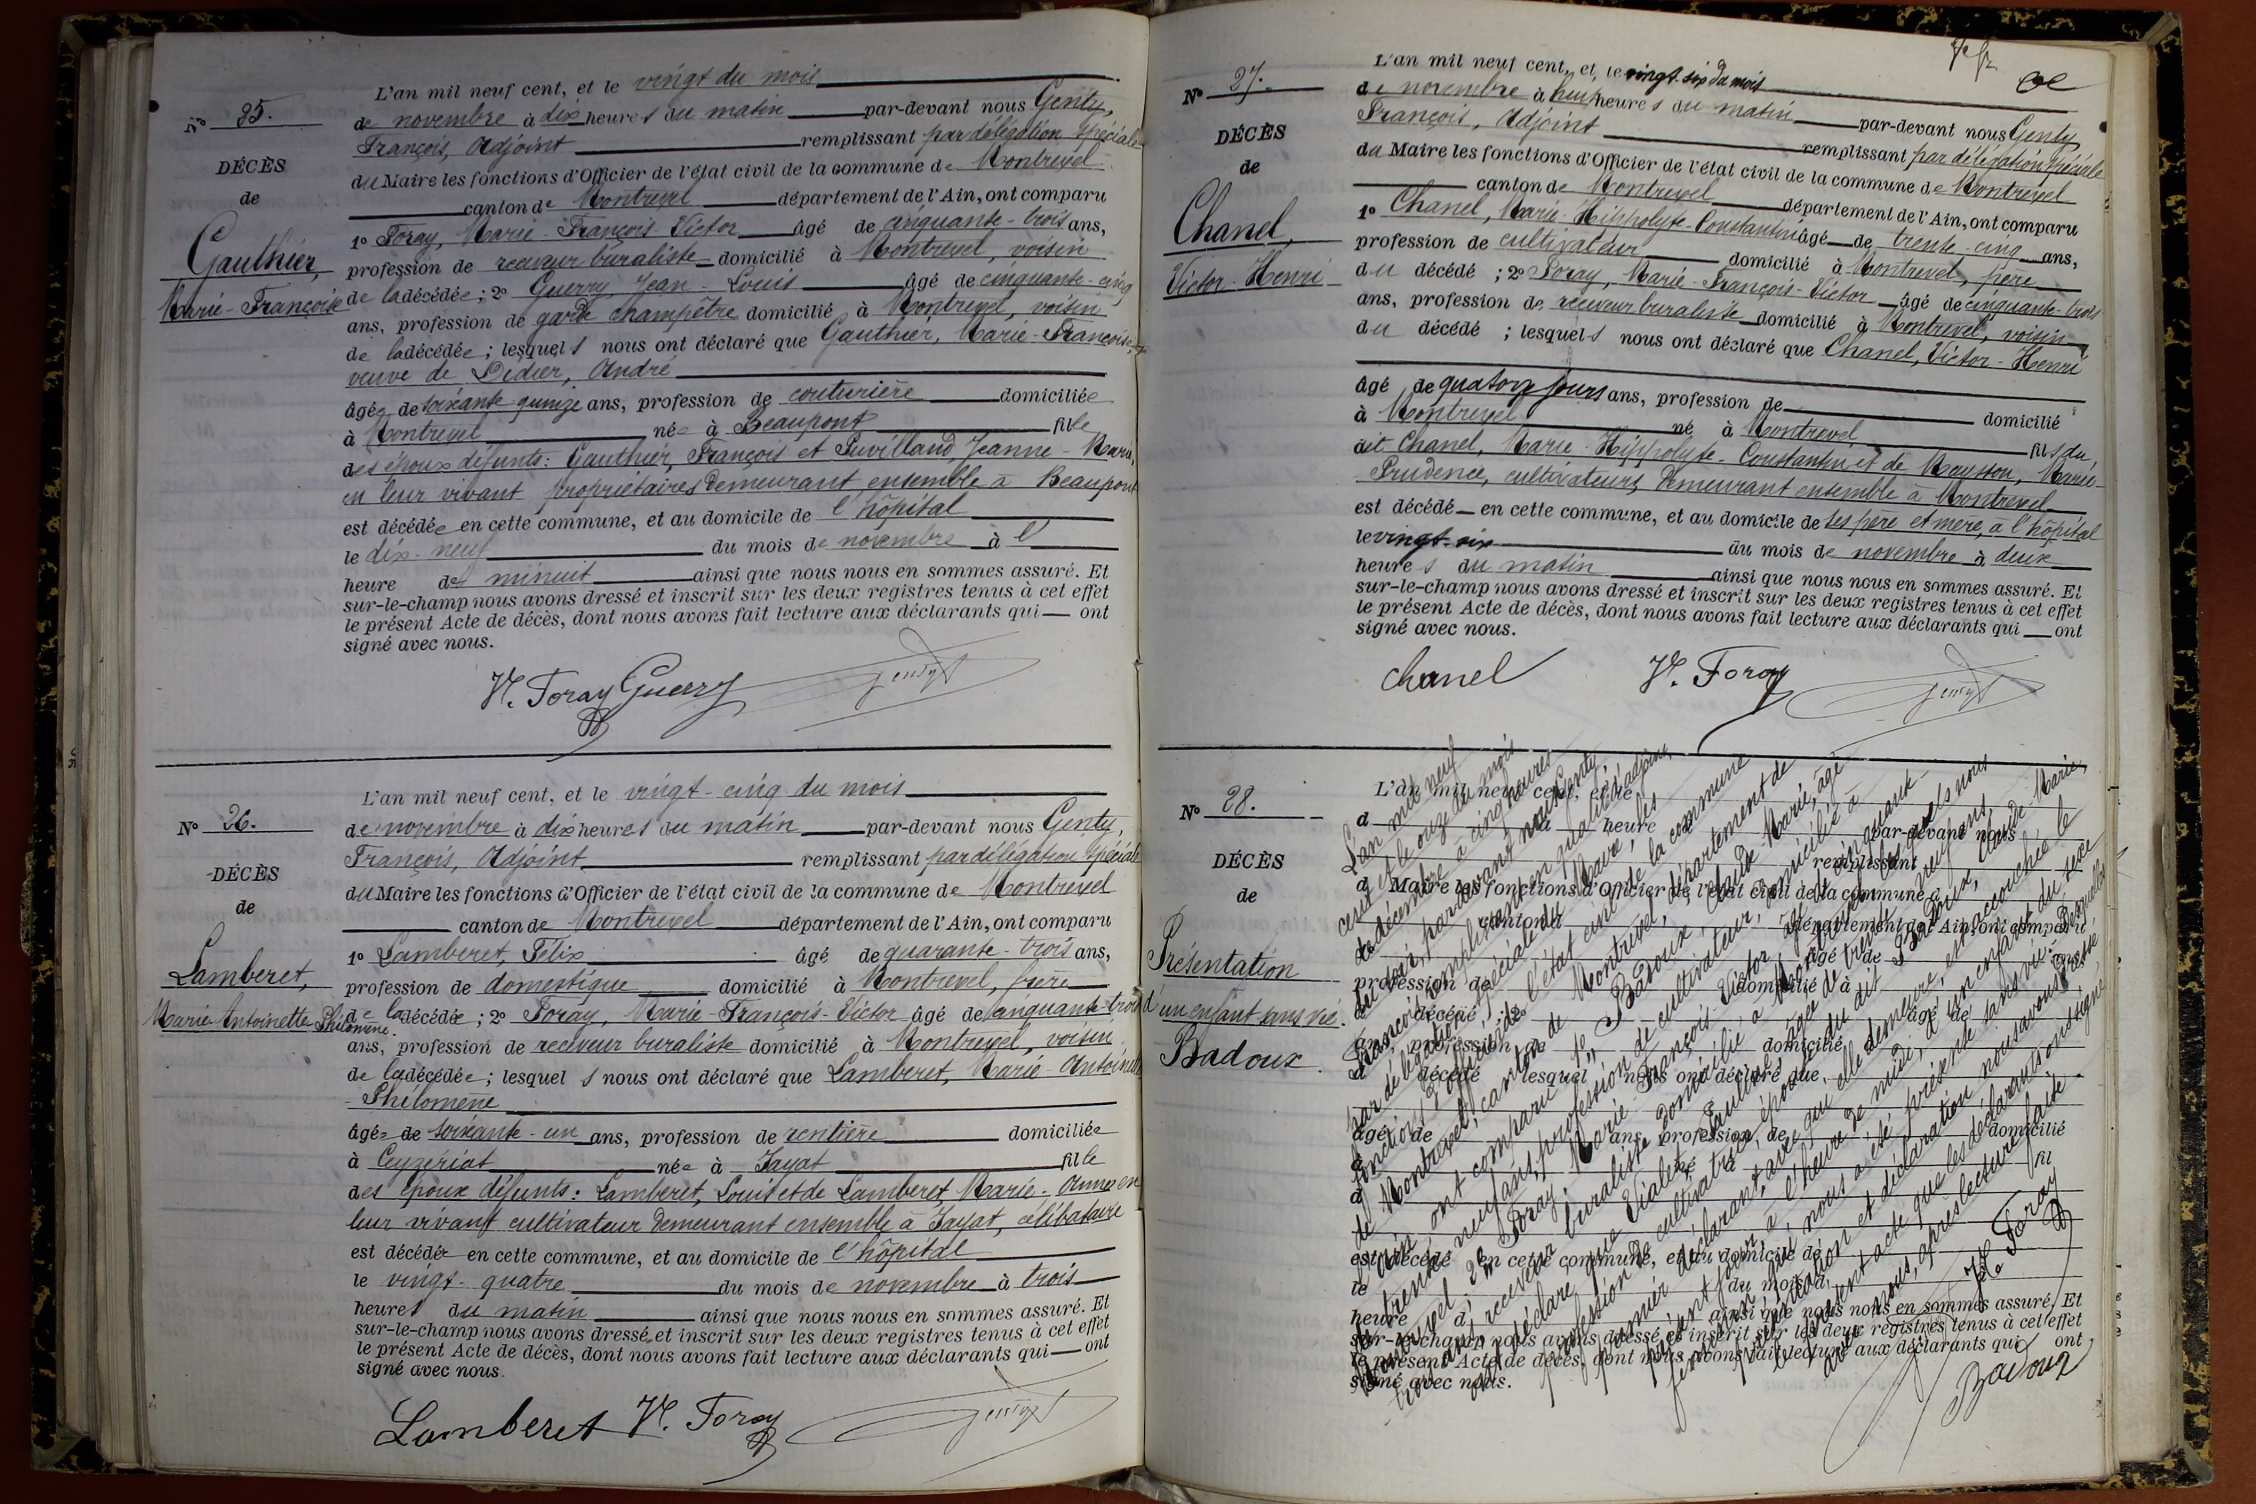 N° 25.
DÉCÈS
de
Gauthier,
Marie-Françoise
L'an mil neuf cent, et le vingt du mois
de novembre à dix heures du matin par-devant nous Genty,
François, Adjoint remplissant par délégation spéciale
du Maire les fonctions d'Officier de l'état civil de la commune de Montrevel
canton de Montrevel département de l'Ain, ont comparu
1° Foray, Marie-François Victor âgé de cinquante-trois ans,
profession de receveur buraliste domicilié à Montrevel, voisin
de la décédée; 2° Guerry, Jean-Louis âgé de cinquante-cinq
ans, profession de garde champêtre domicilié à Montrevel, voisin
de la décédée; lesquels nous ont déclaré que Gauthier, Marie-Françoise,
veuve de Didier, André
âgée de soixante quinze ans, profession de couturière domiciliée
à Montrevel née à Beaupont fille
des époux défunts: Gauthier, François et Puvilland, Jeanne-Marie,
en leur vivant propriétaires demeurant ensemble à Beaupont
est décédée en cette commune, et au domicile de l'hôpital
le dix-neuf du mois de novembre à l'
heure de minuit ainsi que nous nous en sommes assuré. Et
sur-le-champ nous avons dressé et inscrit sur les deux registres tenus à cet effet
le présent Acte de décès, dont nous avons fait lecture aux déclarants qui ont
signé avec nous.
Vr. Foray Guerry Genty
N° 26.
DÉCÈS
de
Lamberet,
Marie Antoinette Philomène.
L'an mil neuf cent, et le vingt-cinq du mois
de novembre à dix heures du matin par-devant nous Genty,
François, Adjoint remplissant par délégation spéciale
du Maire les fonctions d'Officier de l'état civil de la commune de Montrevel
canton de Montrevel département de l'Ain, ont comparu
1° Lamberet, Félix âgé de quarante-trois ans,
profession de domestique domicilié à Montrevel, frère
de la décédée; 2° Foray, Marie-François-Victor âgé de cinquante-trois
ans, profession de receveur buraliste domicilié à Montrevel, voisin
de la décédée; lesquels nous ont déclaré que Lamberet, Marie-Antoinette
Philomène
âgée de soixante-un ans, profession de rentière domiciliée
à Ceyzériat née à Jayat fille
des époux défunts: Lamberet, Louis et de Lamberet, Marie-Anne en
leur vivant cultivateur demeurant ensemble à Jayat, célibataire
est décédée en cette commune, et au domicile de l'hôpital
le vingt-quatre du mois de novembre à trois
heures du matin ainsi que nous nous en sommes assuré. Et
sur-le-champ nous avons dressé et inscrit sur les deux registres tenus à cet effet
le présent Acte de décès, dont nous avons fait lecture aux déclarants qui ont
signé avec nous.
Lamberet Vr. Foray Genty
N° 27.
DÉCÈS
de
Chanel,
Victor-Henri
L'an mil neuf cent, et le vingt-six du mois
de novembre à huit heures du matin par-devant nous Genty
François, Adjoint remplissant par délégation spéciale
du Maire les fonctions d'Officier de l'état civil de la commune de Montrevel
canton de Montrevel département de l'Ain, ont comparu
1° Chanel, Marie-Hippolyte-Constantin âgé de trente-cinq ans,
profession de cultivateur domicilié à Montrevel, père
du décédé; 2° Foray, Marie-François-Victor âgé de cinquante-trois
ans, profession de receveur buraliste domicilié à Montrevel, voisin
du décédé; lesquels nous ont déclaré que Chanel, Victor-Henri
âgé de quatorze jours ans, profession de domicilié
à Montrevel né à Montrevel fils du
dit Chanel, Marie-Hippolyte-Constantin et de Moysson, Marie-
Prudence, cultivateurs, demeurant ensemble à Montrevel
est décédé en cette commune, et au domicile de ses père et mère, à l'hôpital
le vingt-six du mois de novembre à deux
heures du matin ainsi que nous nous en sommes assuré. Et
sur-le-champ nous avons dressé et inscrit sur les deux registres tenus à cet effet
le présent Acte de décès, dont nous avons fait lecture aux déclarants qui ont
signé avec nous.
Chanel Vr. Foray Genty
N° 28.
DÉCÈS
de
Présentation
d'un enfant sans vie.
Badoux
L'an mil neuf cent, et le
d à heure par-devant nous
remplissant
d Maire les fonctions d'Officier de l'état civil de la commune d
canton d département de l'Ain, ont comparu
1° âgé de
profession de domicilié à
d décédé; 2° âgé de
an, profession de domicilié
d décédé lesquel nous ont déclaré que
âgé de ans, profession de domicilié
à né à fil
d
est décédé en cette commune, et au domicile de
le du mois d
heure d ainsi que nous nous en sommes assuré. Et
sur-le-champ nous avons dressé et inscrit sur les deux registres tenus à cet effet
le présent Acte de décès, dont nous avons fait lecture aux déclarants qui ont
signé avec nous.
L'an mil neuf
cent et le onze du mois
de décembre à cinq heures
du soir, par devant nous Genty,
François, remplissant en qualité d'adjoint,
par délégation spéciale du Maire, les
fonctions d'officier de l'état civil de la commune
de Montrevel, canton de Montrevel, département de
l'Ain ont comparu 1° Badoux, Claude-Marie, âgé
de trente neuf ans, profession de cultivateur, domicilié à
Montrevel; 2° Foray, Marie-François-Victor âgé de cinquante-
trois ans, receveur buraliste domicilié à Montrevel lesquels nous
ont déclaré que Vialet, Pauline âgée de trente neuf ans,
profession de cultivatrice, épouse du dit Badoux, Claude-Marie,
premier déclarant, avec qui elle demeure, est accouchée le
présent jour, à l'heure de midi, d'un enfant du sexe
féminin qui nous a été présenté sans vie. Desquelles
présentation et déclaration nous avons dressé
le présent acte que les déclarants ont signé
avec nous, après lecture faite
Vr. Foray
Badoux